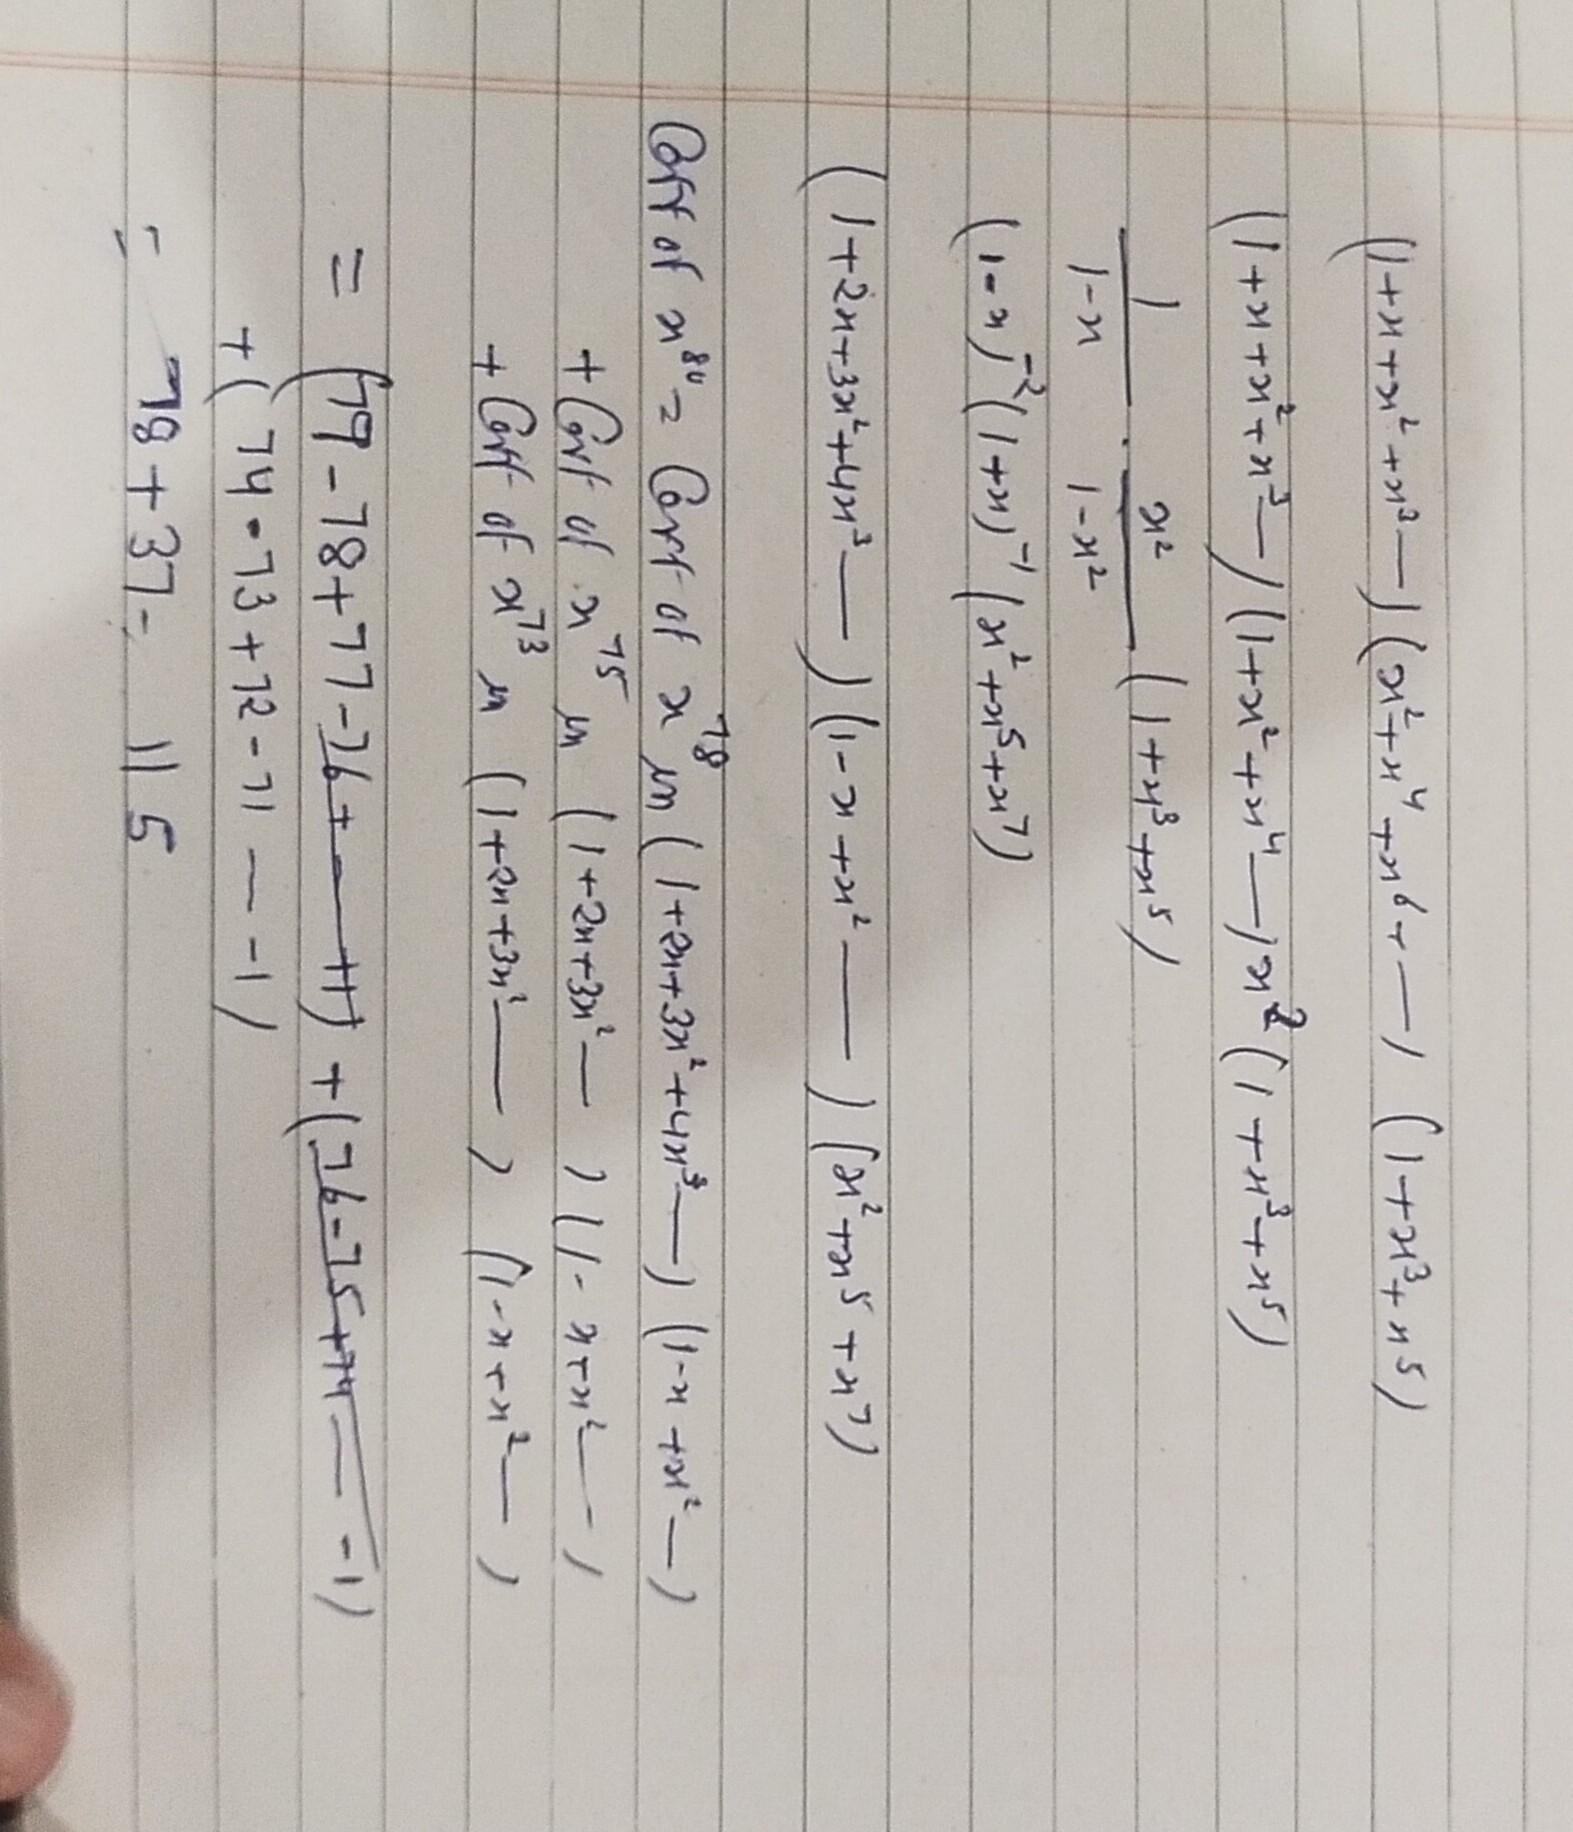 (1+x+x²+x³—)(x²+x⁴+x⁶+—) (1+x³+x⁵)
(1+x+x²+x³—)(1+x²+x⁴—)x²(1+x³+x⁵)
1/1-x · x²/1-x² (1+x³+x⁵)
(1-x)⁻²(1+x)⁻¹(x²+x⁵+x⁷)
(1+2x+3x²+4x³—)(1-x+x²—)(x²+x⁵+x⁷)
Coff of x⁸⁰ = Coff of x⁷⁸ in (1+2x+3x²+4x³—)(1-x+x²—)
+ Coff of x⁷⁵ in (1+2x+3x²—)(1-x+x²—)
+ Coff of x⁷³ in (1+2x+3x²—) (1-x+x²—)
= (79-78+77-76+—+1) + (76-75+74—-1)
+(74-73+72-71—-1)
= 78+37= 115